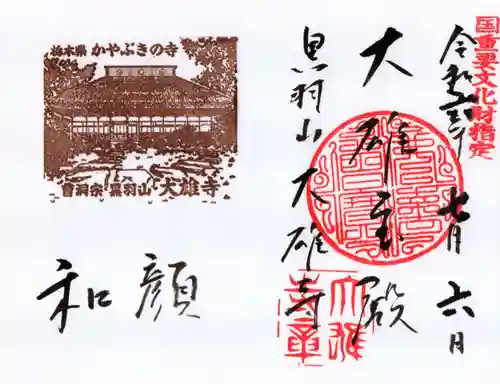 国重要文化財指定
七月六日
大雄宝殿
黒羽山 大雄寺
栃木県 かやぶきの寺
曹洞宗 黒羽山 大雄寺
和顔